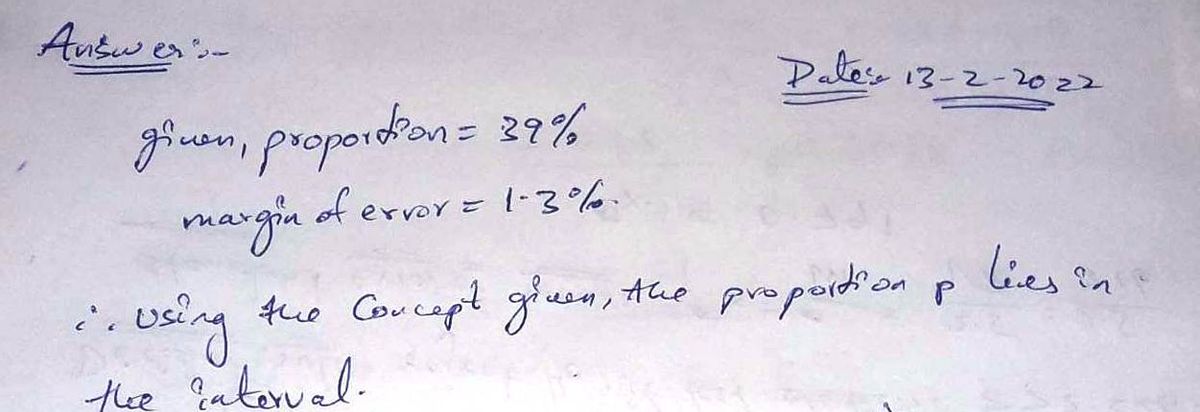 Answer:-
Date:- 13-2-2022
given, proportion = 39%
margin of error = 1.3%.
∴ using the Concept given, the proportion p lies in
the interval.